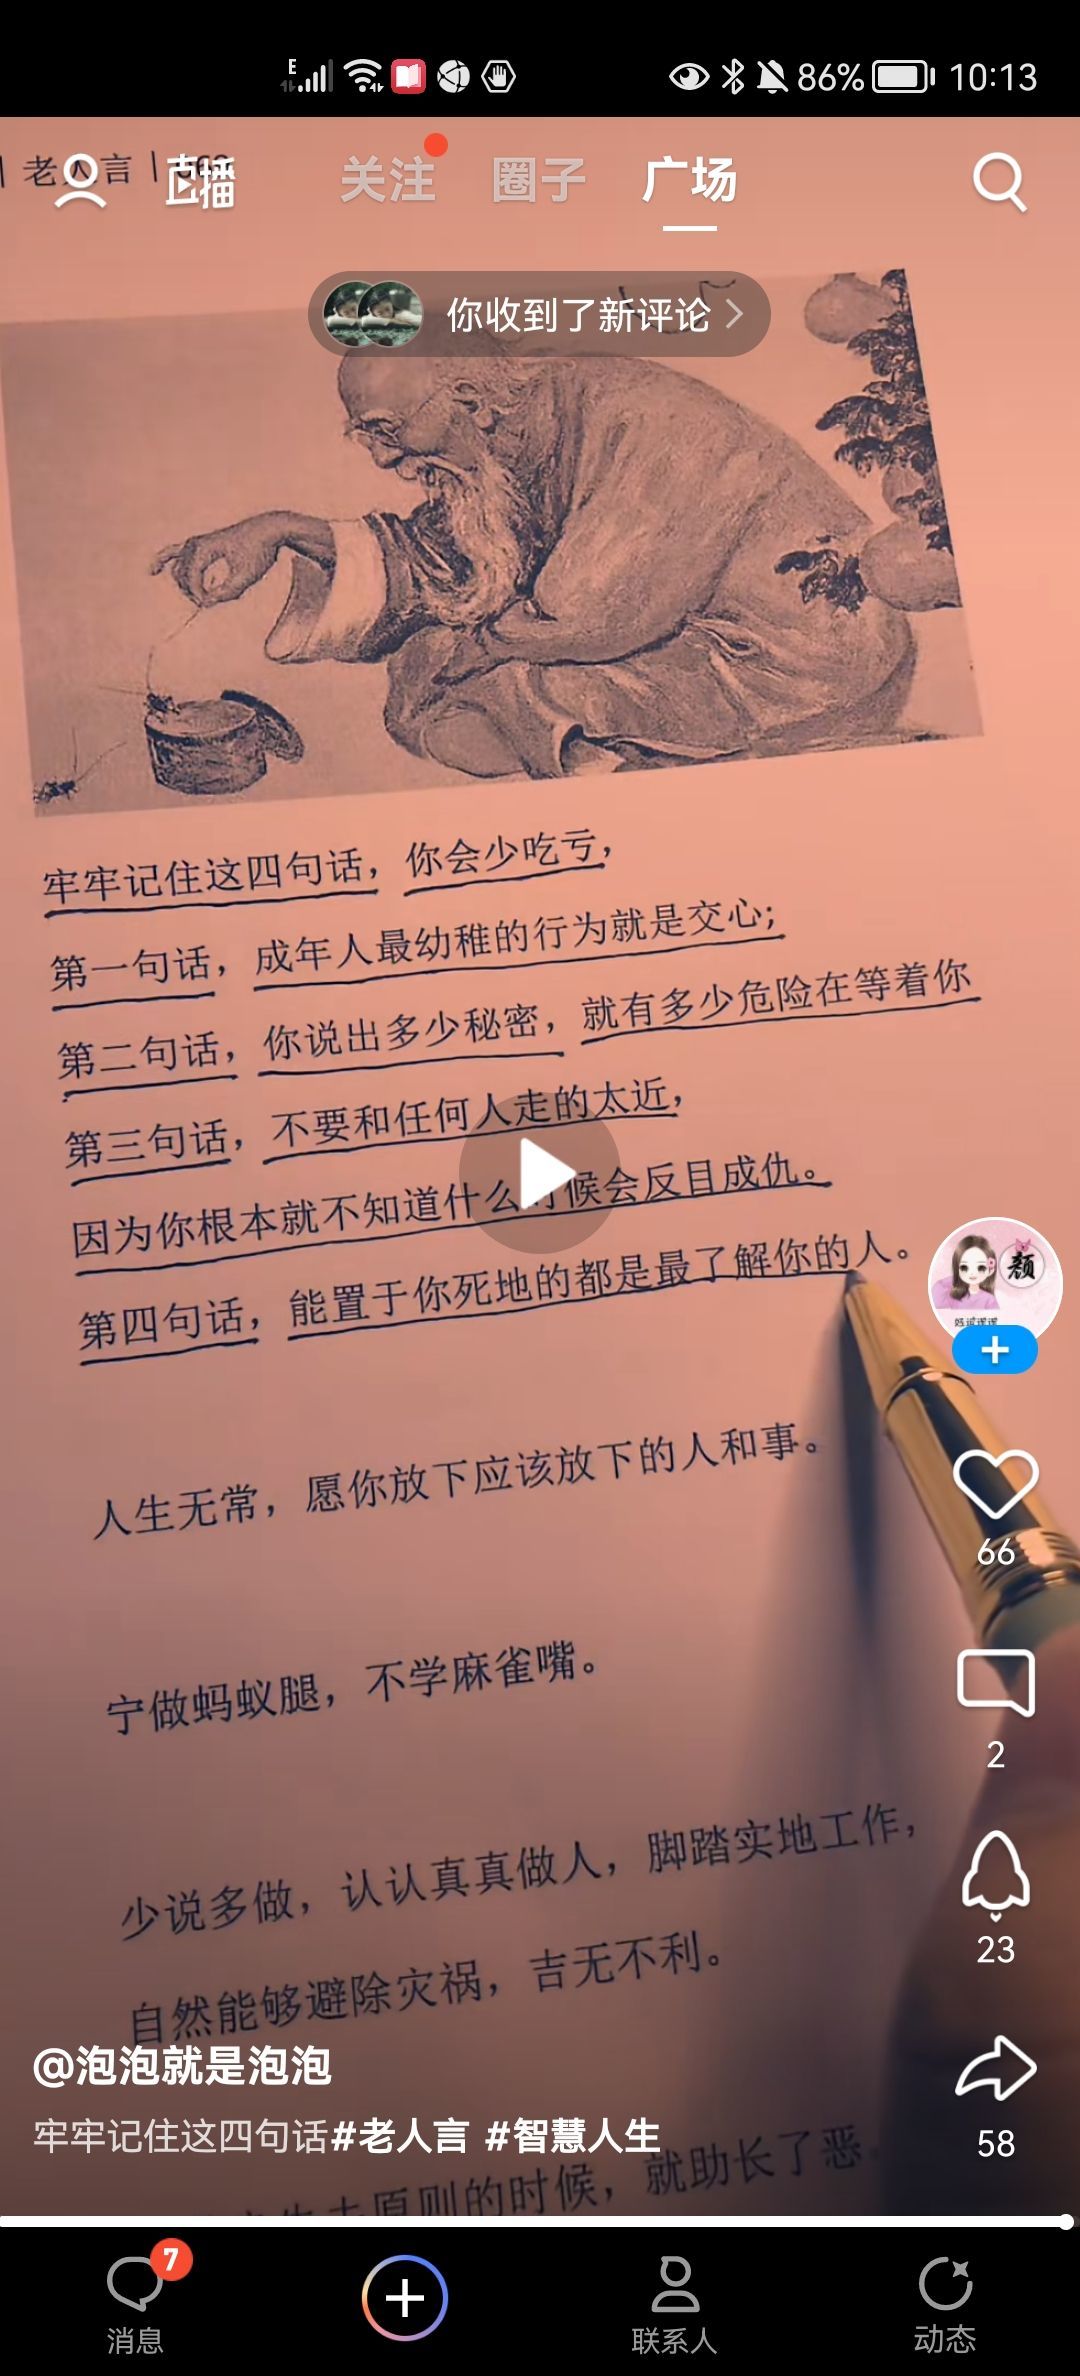 E
86% 10:13
| 老人言 |
直播 关注 圈子 广场
你收到了新评论
牢牢记住这四句话，你会少吃亏，
第一句话，成年人最幼稚的行为就是交心；
第二句话，你说出多少秘密，就有多少危险在等着你
第三句话，不要和任何人走的太近，
因为你根本就不知道什么时候会反目成仇。
第四句话，能置于你死地的都是最了解你的人。
颜
人生无常，愿你放下应该放下的人和事。
66
宁做蚂蚁腿，不学麻雀嘴。
2
少说多做，认认真真做人，脚踏实地工作，
23
自然能够避除灾祸，吉无不利。
@泡泡就是泡泡
牢牢记住这四句话#老人言 #智慧人生
58
原则的时候，就助长了恶。
7
消息 联系人 动态